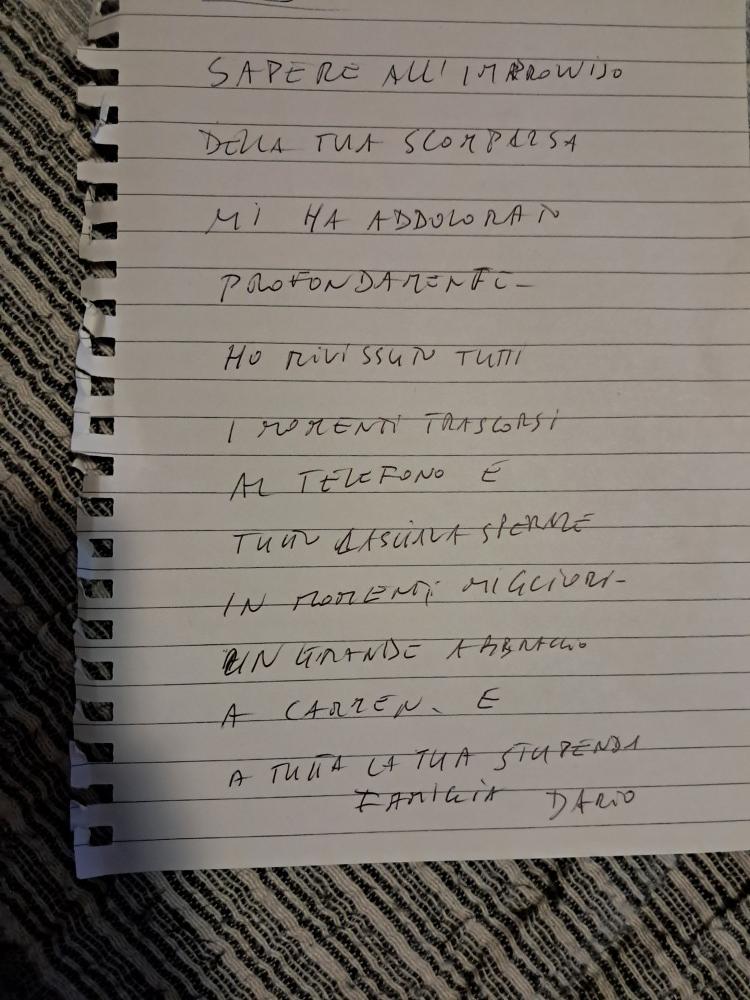 SAPERE ALL'IMPROVVISO
DELLA TUA SCOMPARSA
MI HA ADDOLORATO
PROFONDAMENTE-
HO RIVISSUTO TUTTI
I MOMENTI TRASCORSI
AL TELEFONO E
TUTTO LASCIAVA SPERARE
IN MOMENTI MIGLIORI-
UN GRANDE ABBRACCIO
A CARMEN. E
A TUTTA LA TUA STUPENDA
FAMIGLIA DARIO